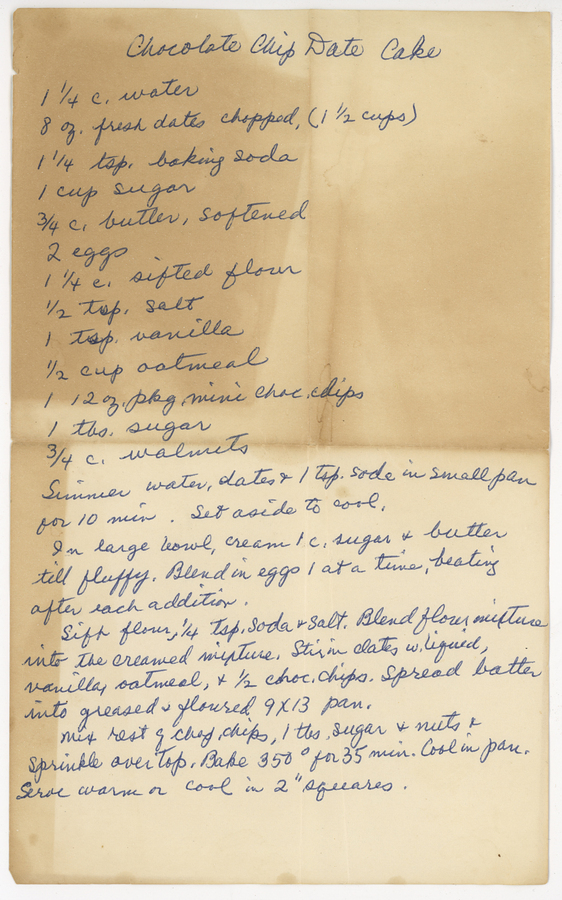 Chocolate Chip Date Cake
1 1/4 c. water
8 oz. fresh dates chopped, (1 1/2 cups)
1 1/4 tsp. baking soda
1 cup sugar
3/4 c. butter, softened
2 eggs
1 1/4 c. sifted flour
1/2 tsp. salt
1 tsp. vanilla
1/2 cup oatmeal
1 12 oz. pkg. mini choc. chips
1 tbs. sugar
3/4 c. walnuts
Simmer water, dates & 1 tsp. soda in small pan
for 10 min. Set aside to cool.
In large bowl, cream 1 c. sugar & butter
till fluffy. Blend in eggs 1 at a time, beating
after each addition.
Sift flour, 1/4 tsp. soda & salt. Blend flour mixture
into the creamed mixture. Stir in dates w. liquid,
vanilla, oatmeal, & 1/2 choc. chips. Spread batter
into greased & floured 9X13 pan.
Mix rest of choc. chips, 1 tbs. sugar & nuts &
sprinkle over top. Bake 350° for 35 min. Cool in pan.
Serve warm or cool in 2" squares.